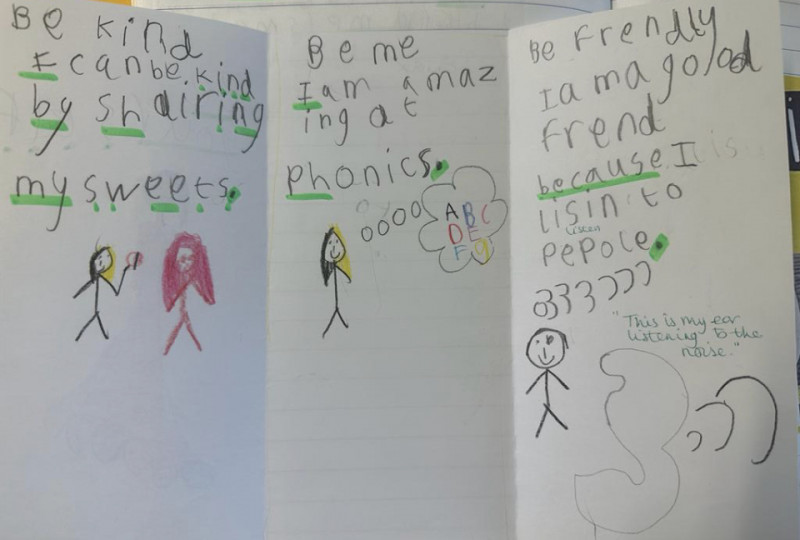 Be Kind
I can be kind
by shairing
my sweets.
Be me
I am amaz
ing at
phonics.
A B C
D E
F g
Be Frendly
I am a goood
frend
because I is
lisin to
listen
pepole.
"This is my ear
listening to the
noise."